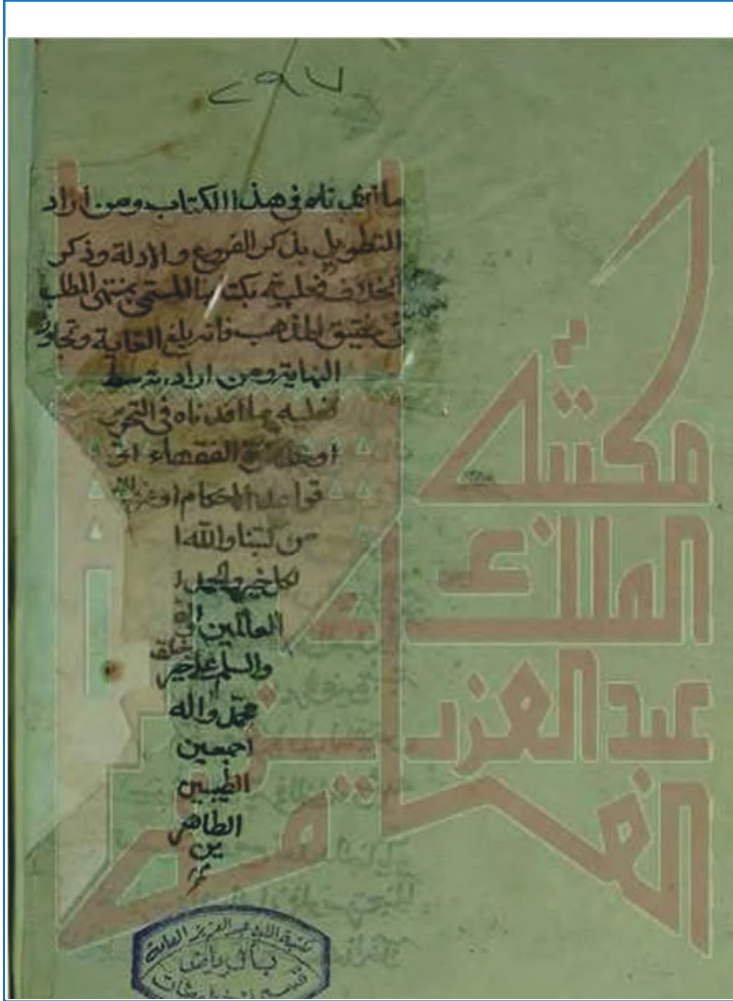 ٢٩٧
ما أوردناه في هذا الكتاب ومن اراد
التطويل بذكر الفروع والادلة وذكر
الخلاف فعليه بكتابنا المسمى بمنتهى المطلب
في تحقيق المذهب فانه بلغ الغاية وتجاوز
النهاية ومن اراد التوسط
فعليه بما افدناه في التحرير
او تذكرة الفقهاء او
قواعد الاحكام او غير ذلك
من كتبنا والله ا
لكل خير والحمد
العالمين
والسلم على خير خلقه
محمد واله
اجمعين
الطيبين
الطاهر
ين
مكتبة
الملك
عبد العزيز
العامة
مكتبة الملك عبد العزيز العامة
بالرياض
قسم المخطوطات